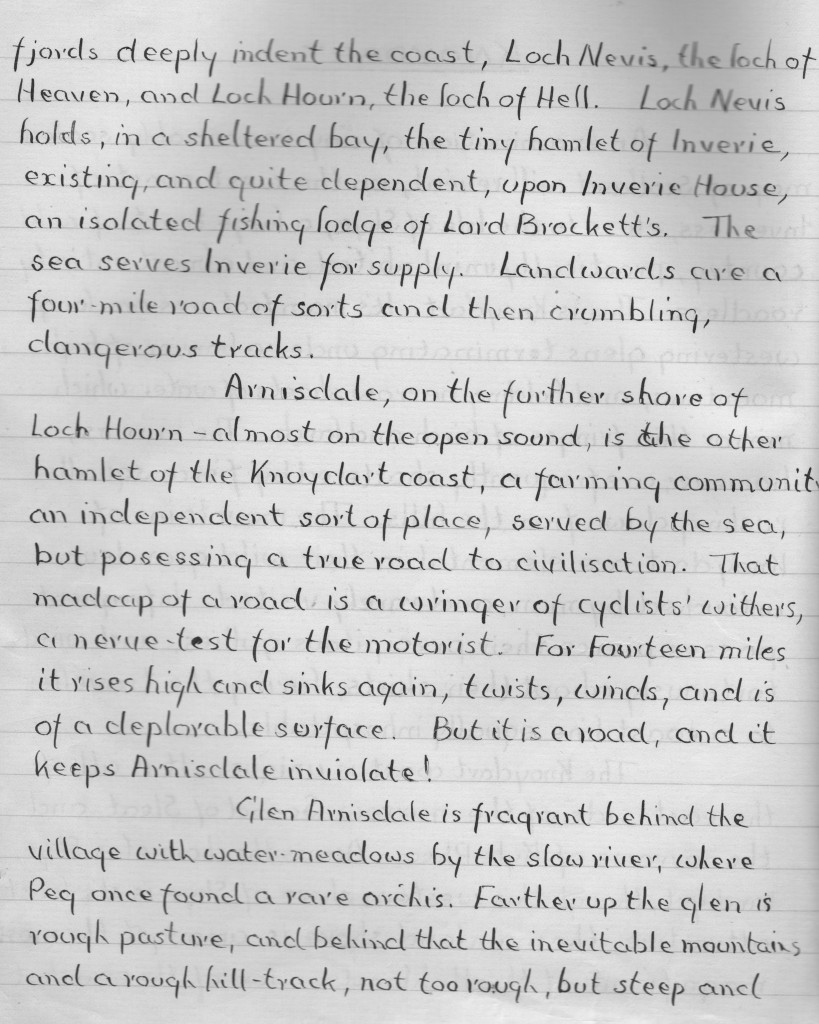 fjords deeply indent the coast, Loch Nevis, the loch of
Heaven, and Loch Hourn, the loch of Hell. Loch Nevis
holds, in a sheltered bay, the tiny hamlet of Inverie,
existing, and quite dependent, upon Inverie House,
an isolated fishing lodge of Lord Brockett's. The
sea serves Inverie for supply. Landwards are a
four-mile road of sorts and then crumbling,
dangerous tracks.
Arnisdale, on the further shore of
Loch Hourn - almost on the open sound, is the other
hamlet of the Knoydart coast, a farming communit
an independent sort of place, served by the sea,
but posessing a true road to civilisation. That
madcap of a road is a wringer of cyclists' withers,
a nerve-test for the motorist. For Fourteen miles
it rises high and sinks again, twists, winds, and is
of a deplorable surface. But it is a road, and it
keeps Arnisdale inviolate!
Glen Arnisdale is fragrant behind the
village with water-meadows by the slow river, where
Peg once found a rare orchis. Farther up the glen is
rough pasture, and behind that the inevitable mountains
and a rough hill-track, not too rough, but steep and